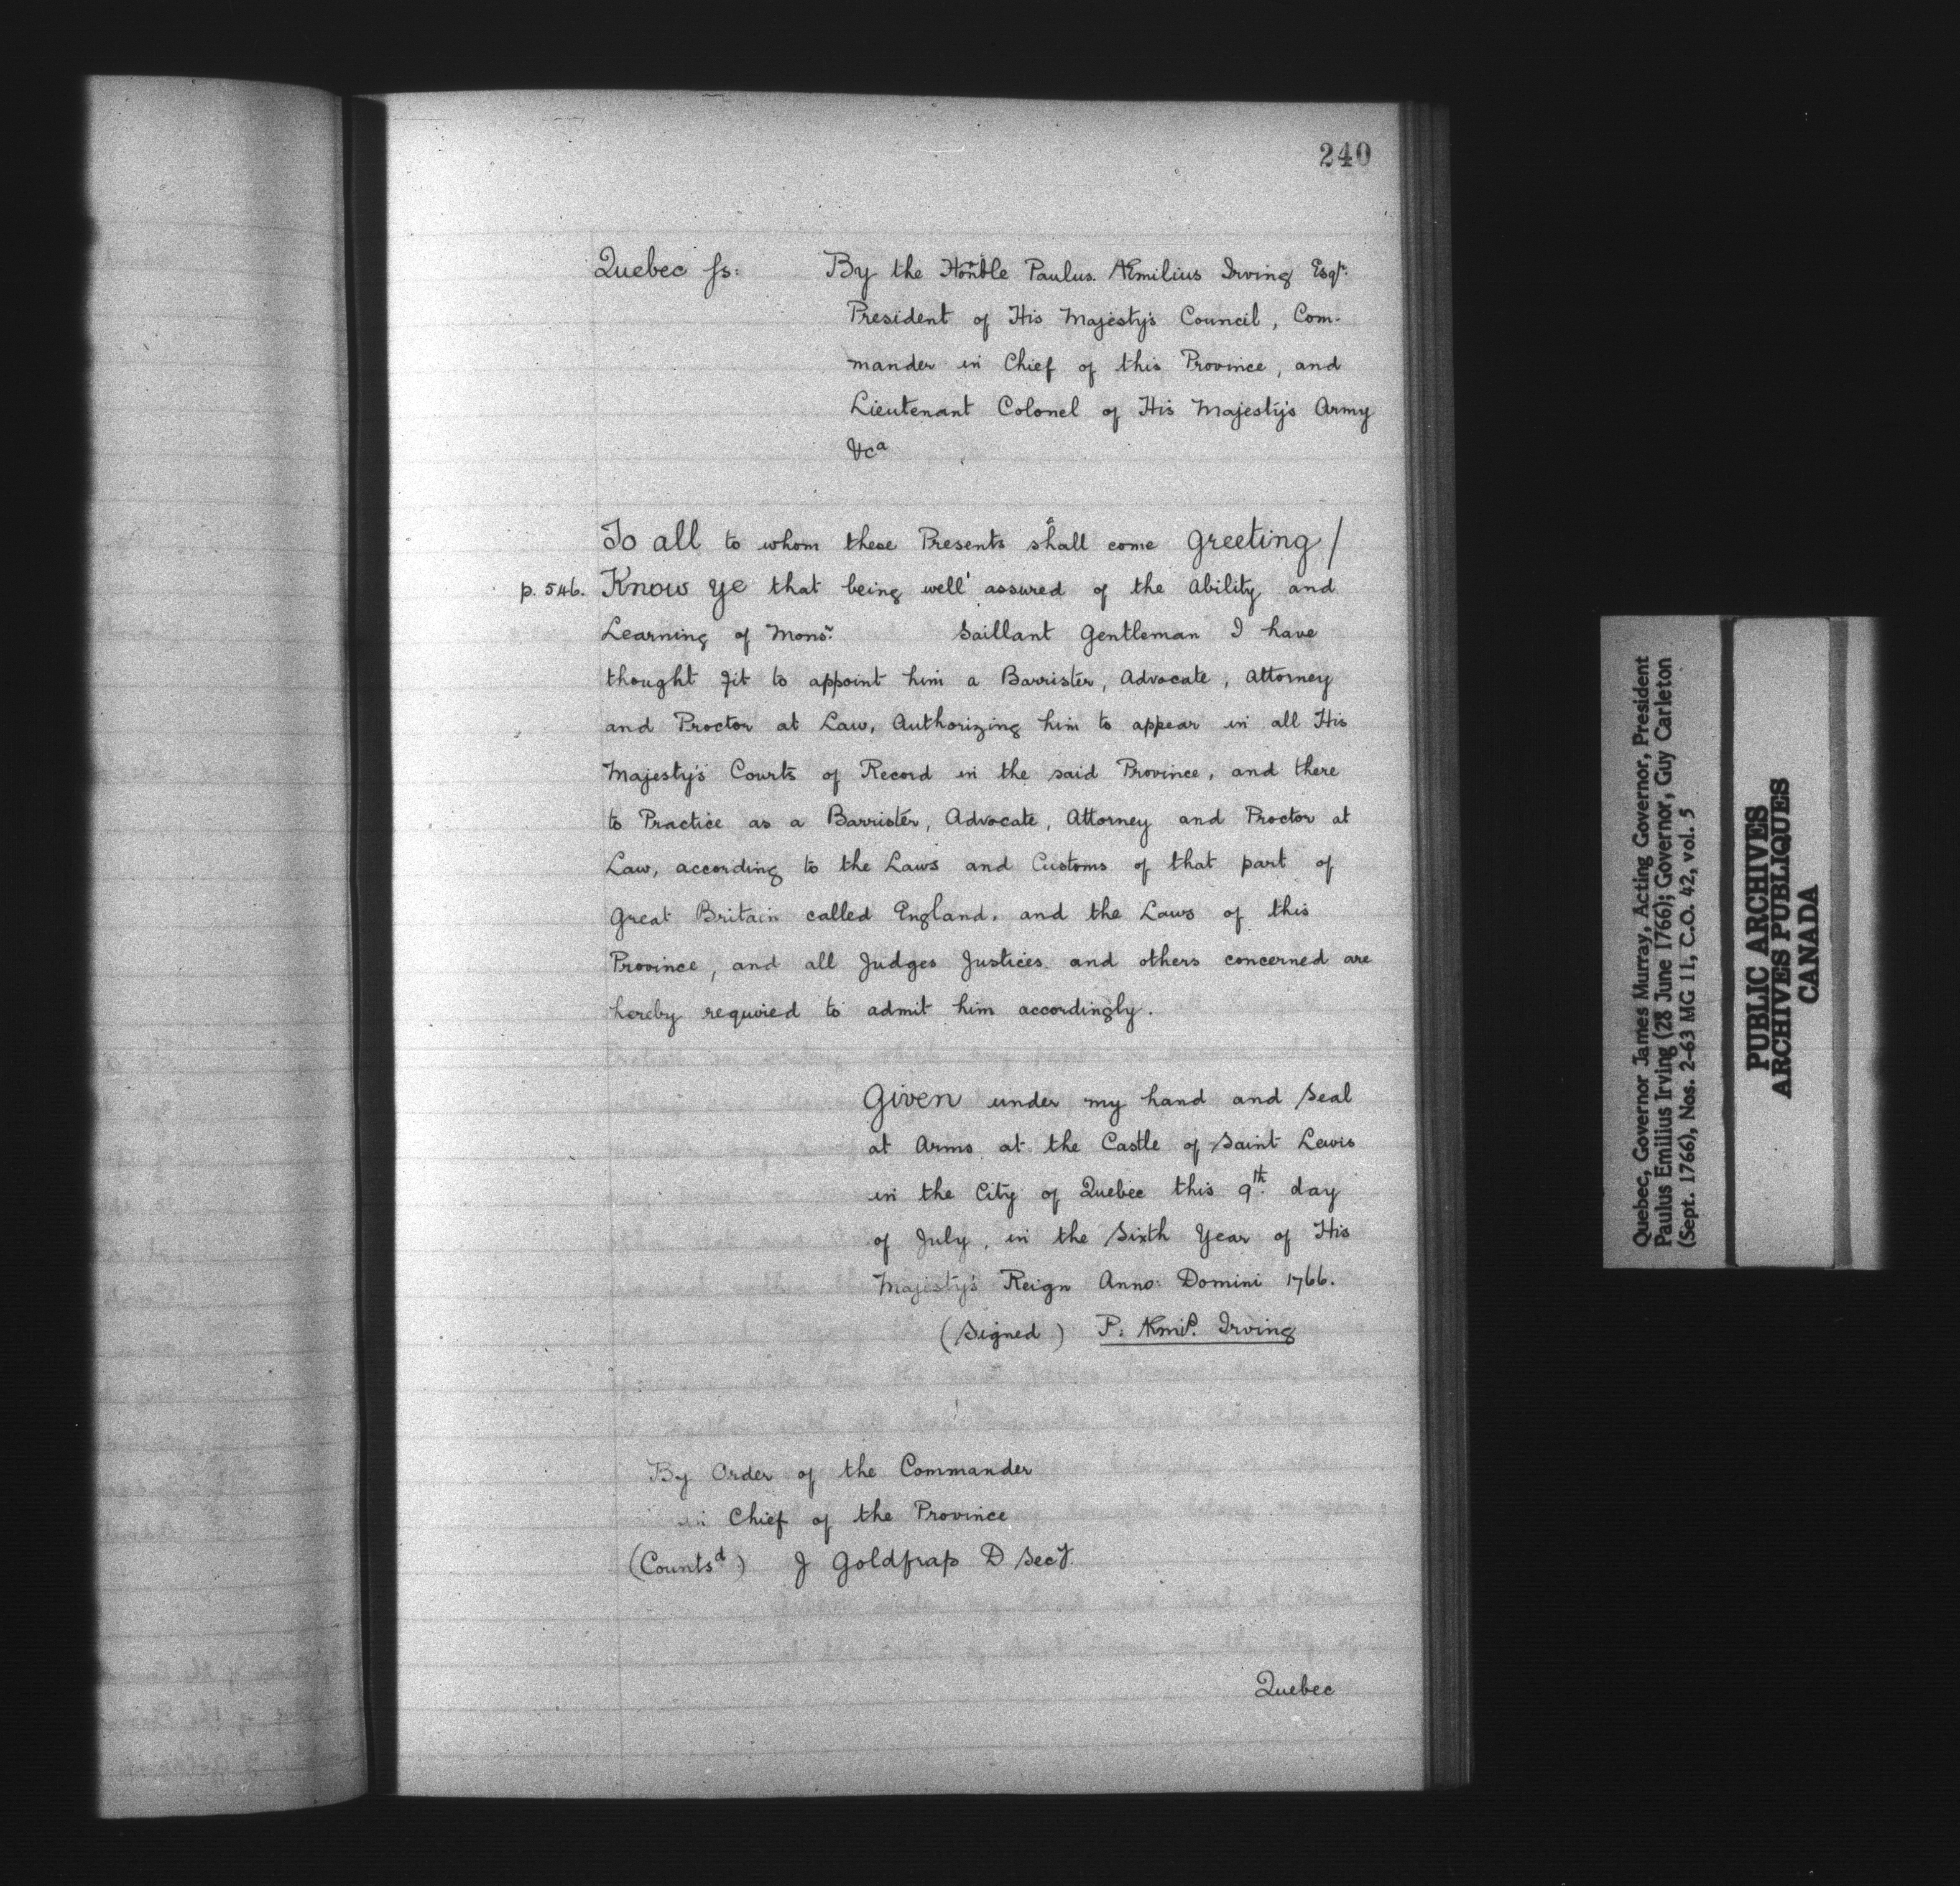 240
Quebec ſs: By the Honble Paulus Æmilius Irving Esqr.
President of His Majesty's Council, Com-
mander in Chief of this Province, and
Lieutenant Colonel of His Majesty's Army
&ca
To all to whom these Presents shall come Greeting/
p. 546. Know Ye that being well assured of the Ability and
Learning of Monsr. Saillant Gentleman I have
thought fit to appoint him a Barrister, Advocate, Attorney
and Proctor at Law, Authorizing him to appear in all His
Majesty's Courts of Record in the said Province, and there
to Practice as a Barrister, Advocate, Attorney and Proctor at
Law, according to the Laws and Customs of that part of
Great Britain called England, and the Laws of this
Province, and all Judges Justices and others concerned are
hereby required to admit him accordingly.
Given under my hand and Seal
at Arms at the Castle of Saint Lewis
in the City of Quebec this 9th. day
of July, in the Sixth Year of His
Majesty's Reign Anno: Domini 1766.
(Signed) P: Æmils. Irving
By Order of the Commander
in Chief of the Province
(Countsd) J Goldfrap D Secy.
Quebec
Quebec, Governor James Murray, Acting Governor, President
Paulus Emilius Irving (28 June 1766); Governor, Guy Carleton
(Sept. 1766), Nos. 2-63 MG 11, C.O. 42, vol. 5
PUBLIC ARCHIVES
ARCHIVES PUBLIQUES
CANADA